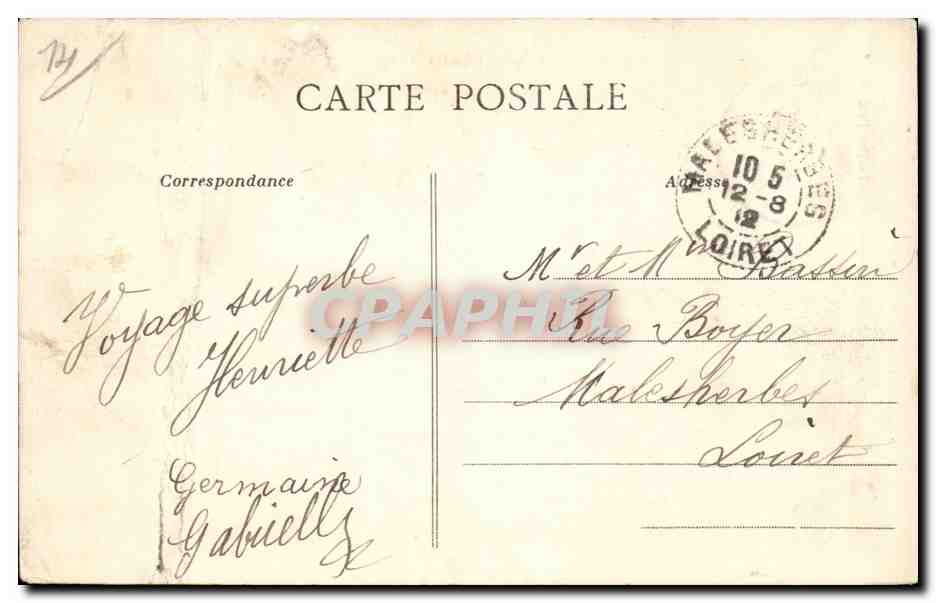 14
CARTE POSTALE
Correspondance
Adresse
MALESHERBES
10 5
12-8
12
LOIRET
Voyage superbe
Henriette
Germaine
Gabrielle
Mr et Mme
Rue Boyer
Malesherbes
Loiret
CPAPHIL